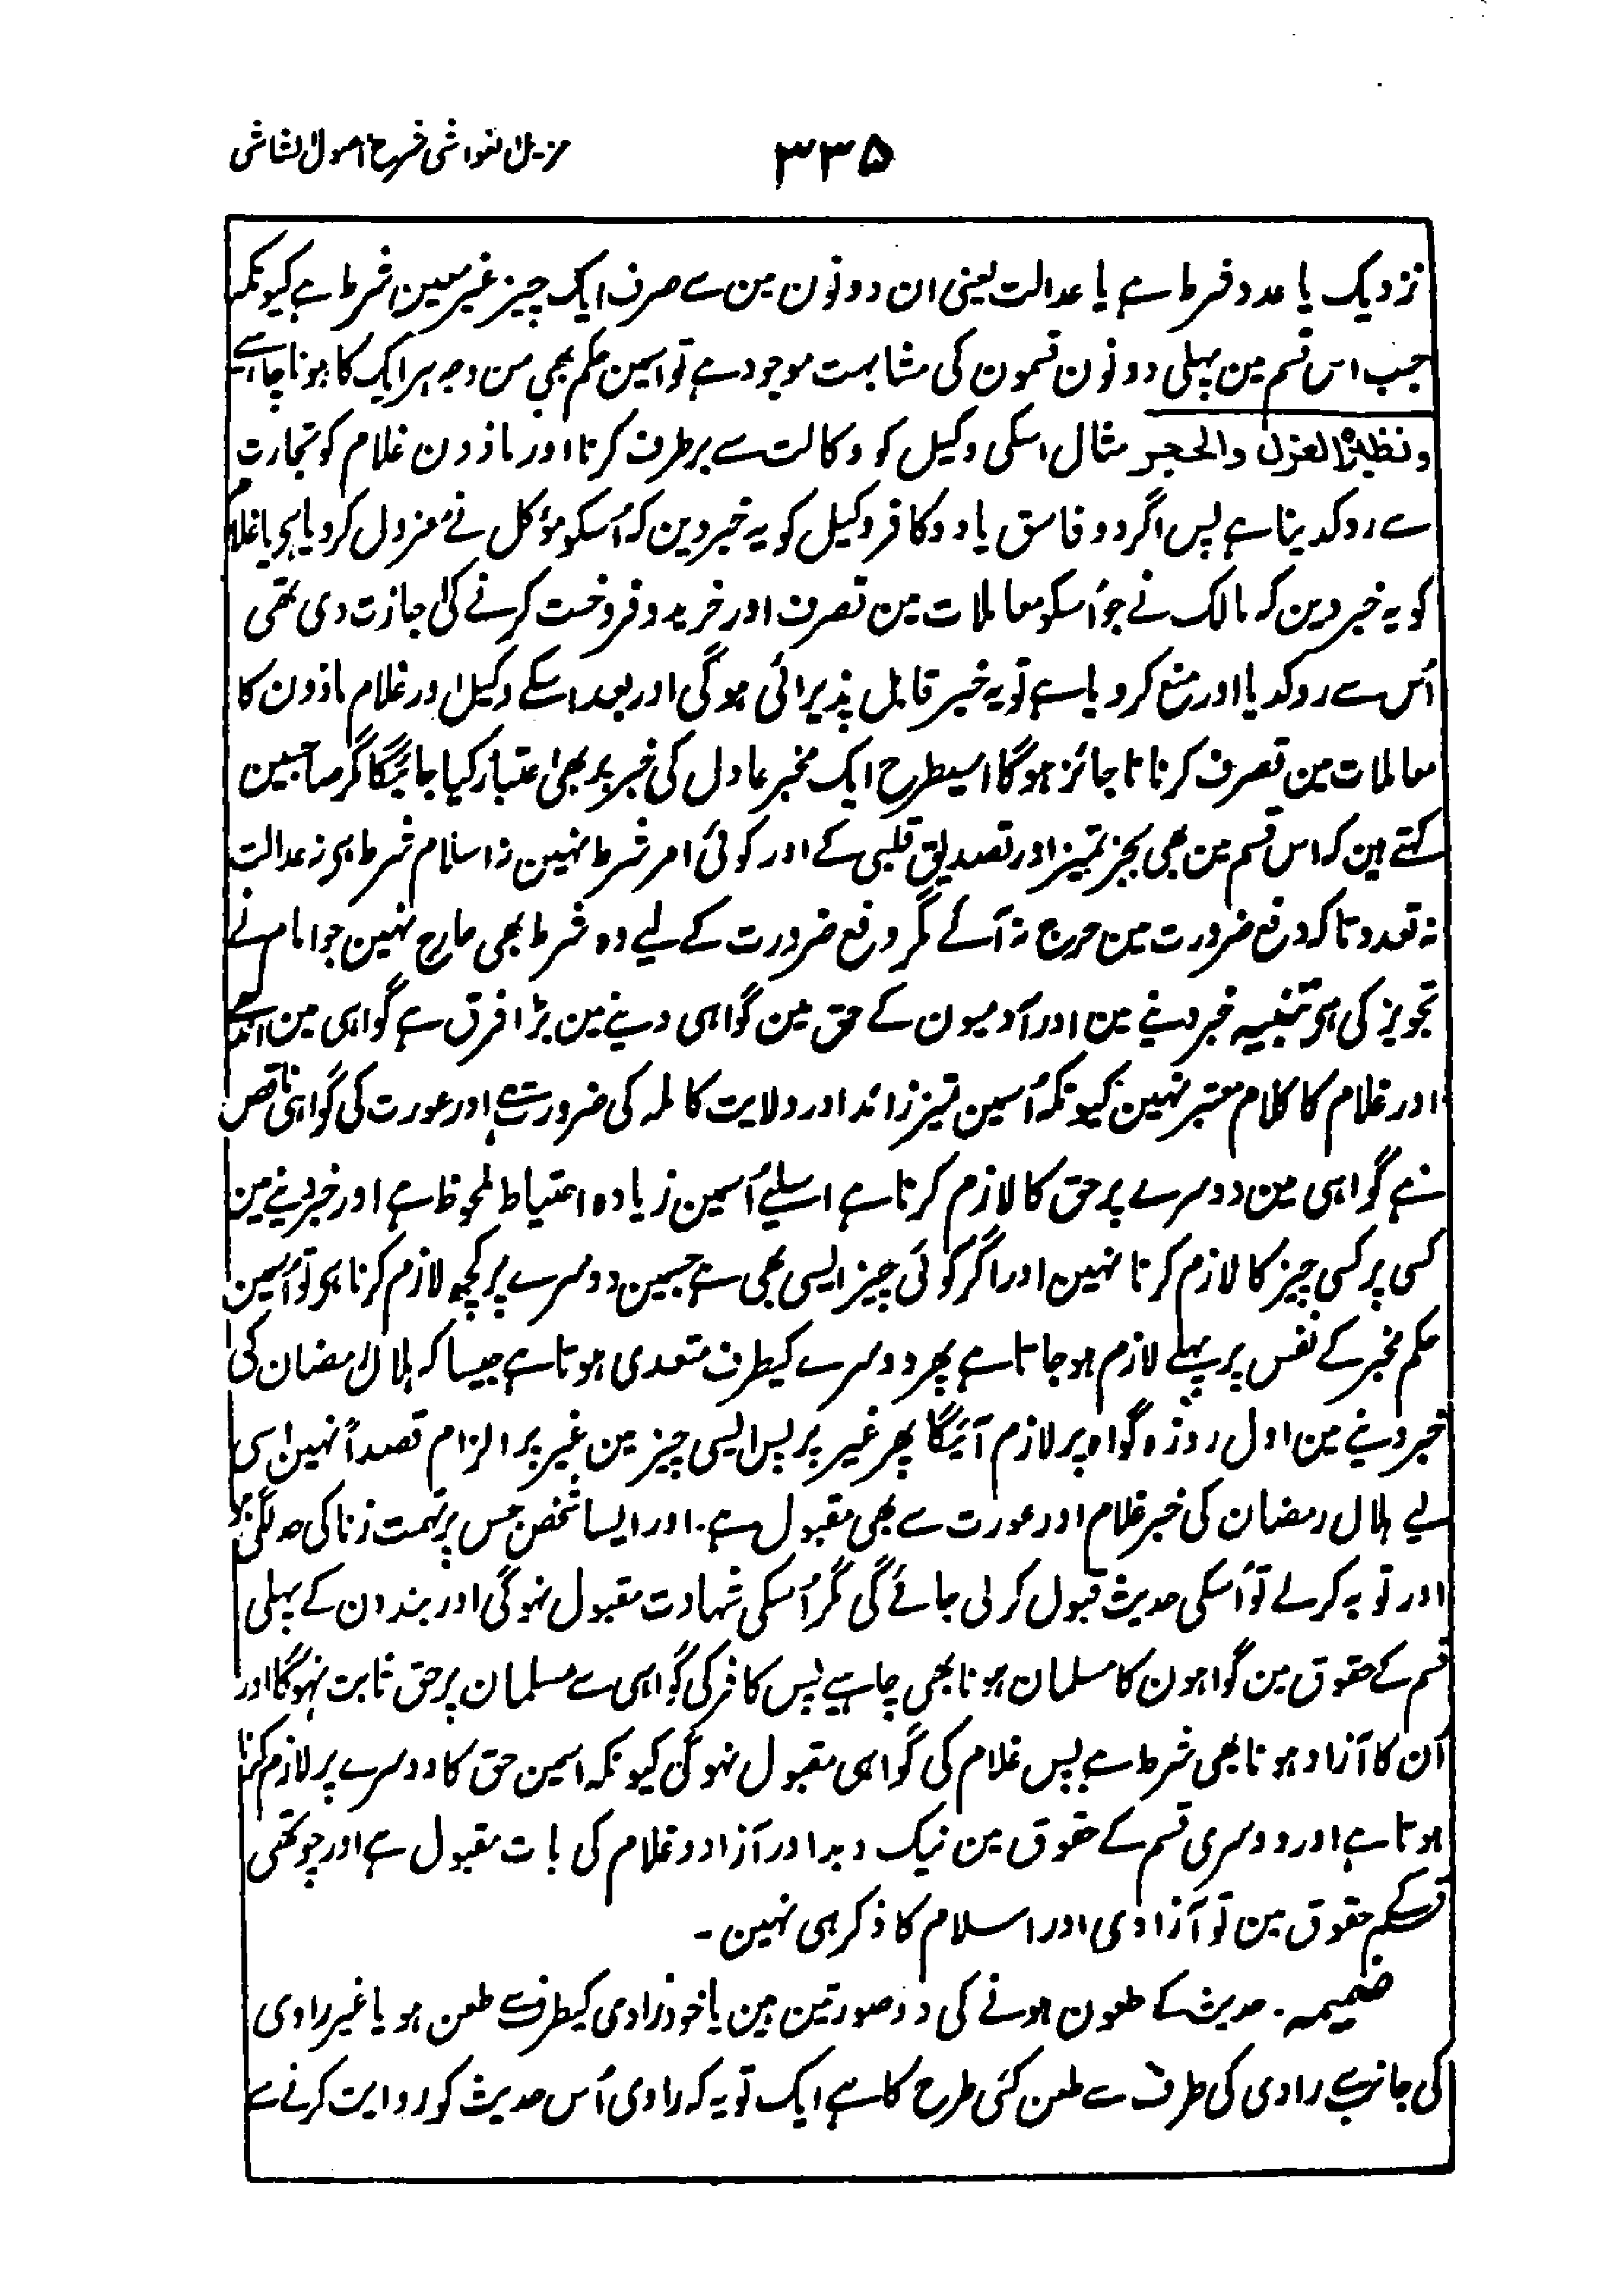 ۳۳۵
مزیل الغواشی شرح اصول الشاشی
نزدیک یا عدد شرط ہے یا عدالت یعنی ان دونون مین سے صرف ایک چیز غیر معین شرط ہے کیونکہ
جب اس قسم مین پہلی دونون قسمون کی مشابہت موجود ہے تو اسمین حکم بھی من وجہ ہر ایک کا ہونا چاہے
ونظیرہ العزل والحجر مثال اسکی وکیل کو وکالت سے برطرف کرنا اور ماذون غلام کو تجارت
سے روکدینا ہے پس اگر دو فاسق یا دو کافر وکیل کو یہ خبر دین کہ اُسکو مؤکل نے معزول کردیا ہی یا غلام
کو یہ خبر دین کہ مالک نے جو اُسکو معاملات مین تصرف اور خرید و فروخت کرنے کی اجازت دی تھی
اُس سے روکدیا اور منع کردیا ہے تو یہ خبر قابل پذیرائی ہوگی اور بعد اسکے وکیل اور غلام ماذون کا
معاملات مین تصرف کرنا نا جائز ہوگا اسیطرح ایک مخبر عادل کی خبر پر بھی اعتبار کیا جائیگا مگر صاحبین
کہتے ہین کہ اس قسم مین بھی بجز تمیز اور تصدیق قلبی کے اور کوئی امر شرط نہین نہ اسلام شرط ہی نہ عدالت
نہ تعدد تاکہ دفع ضرورت مین حرج نہ آئے مگر دفع ضرورت کے لیے وہ شرط بھی حارج نہین جو امام نے
تجویز کی ہی تنبیہ خبر دینے مین اور آدمیون کے حق مین گواہی دینے مین بڑا فرق ہے گواہی مین اندھے
اور غلام کا کلام معتبر نہین کیونکہ اُسمین تمیز زائد اور ولایت کاملہ کی ضرورت ہے اور عورت کی گواہی ناقص
ہے گواہی مین دوسرے پر حق کا لازم کرنا ہے اسلیے اُسمین زیادہ احتیاط ملحوظ ہے اور خبر دینے مین
کسی پر کسی چیز کا لازم کرنا نہین اور اگر کوئی چیز ایسی بھی ہے جسمین دوسرے پر کچھ لازم کرنا ہو تو اُسمین
حکم مخبر کے نفس پر پہلے لازم ہو جاتا ہے پھر دوسرے کیطرف متعدی ہوتا ہے جیسا کہ ہلال رمضان کی
خبر دینے مین اول روزہ گواہ پر لازم آئیگا پھر غیر پر پس ایسی چیز مین غیر پر الزام قصداً نہین اسی
لیے ہلال رمضان کی خبر غلام اور عورت سے بھی مقبول ہے۔ اور ایسا شخص جس پر تہمت زنا کی حد لگی ہو
اور توبہ کرلے تو اُسکی حدیث قبول کرلی جائے گی مگر اُسکی شہادت مقبول نہوگی اور بندون کے پہلی
قسم کے حقوق مین گواہون کا مسلمان ہونا بھی چاہیے پس کافر کی گواہی سے مسلمان پر حق ثابت نہوگا اور
اُن کا آزاد ہونا بھی شرط ہے پس غلام کی گواہی مقبول نہوگی کیونکہ اسمین حق کا دوسرے پر لازم کرنا
ہوتا ہے اور دوسری قسم کے حقوق مین نیک و بد اور آزاد و غلام کی بات مقبول ہے اور چوتھی
قسم کے حقوق مین تو آزادی اور اسلام کا ذکر ہی نہین۔
ضمیمہ۔ حدیث کے مطعون ہونے کی دو صورتین ہین یا خود راوی کیطرف سے طعن ہو یا غیر راوی
کی جانب سے راوی کی طرف سے طعن کئی طرح کا ہے ایک تو یہ کہ راوی اُس حدیث کو روایت کرنے سے